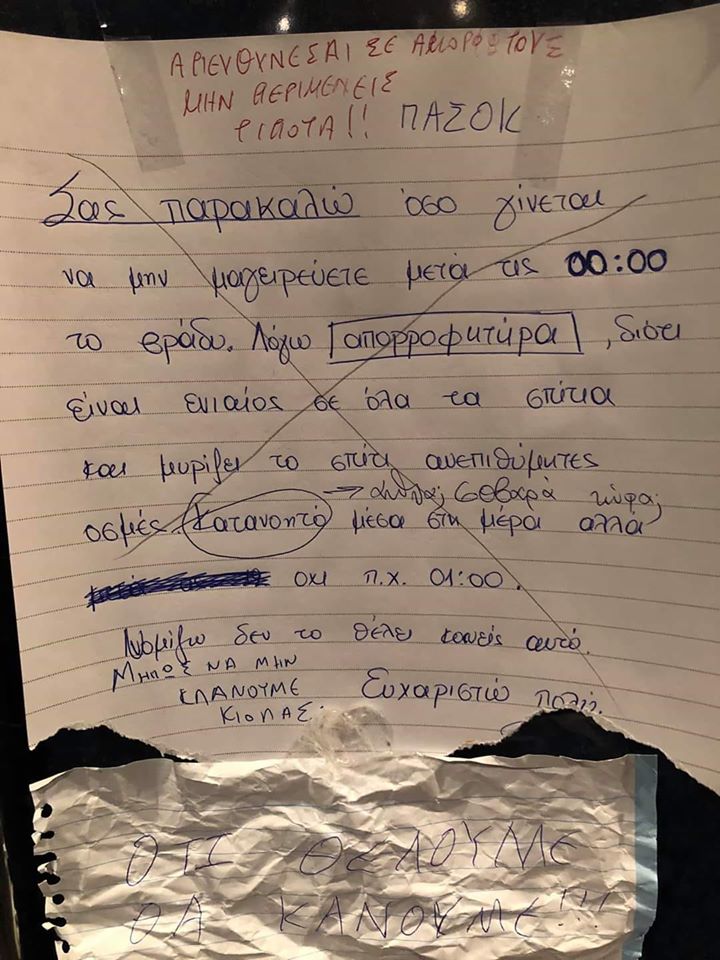 ΑΠΕΥΘΥΝΕΣΑΙ ΣΕ ΑΜΟΡΦΩΤΟΥΣ
ΜΗΝ ΠΕΡΙΜΕΝΕΙΣ
ΤΙΠΟΤΑ!! ΠΑΣΟΚ
Σας παρακαλώ όσο γίνεται
να μην μαγειρεύετε μετά τις 00:00
το βράδυ. Λόγω απορροφητύρα, διότι
είναι ενιαίος σε όλα τα σπίτια
και μυρίζει το σπίτι ανεπιθύμητες
→ αλήθεια; σοβαρά τώρα;
οσμές. Κατανοητό μέσα στη μέρα αλλά
οχι π.χ. 01:00.
Νομίζω δεν το θέλει κανείς αυτό.
ΜΗΠΩΣ ΝΑ ΜΗΝ
ΚΛΑΝΟΥΜΕ
ΚΙΟΛΑΣ;
Ευχαριστώ πολύ.
ΟΤΙ ΘΕΛΟΥΜΕ
ΘΑ ΚΑΝΟΥΜΕ!!!